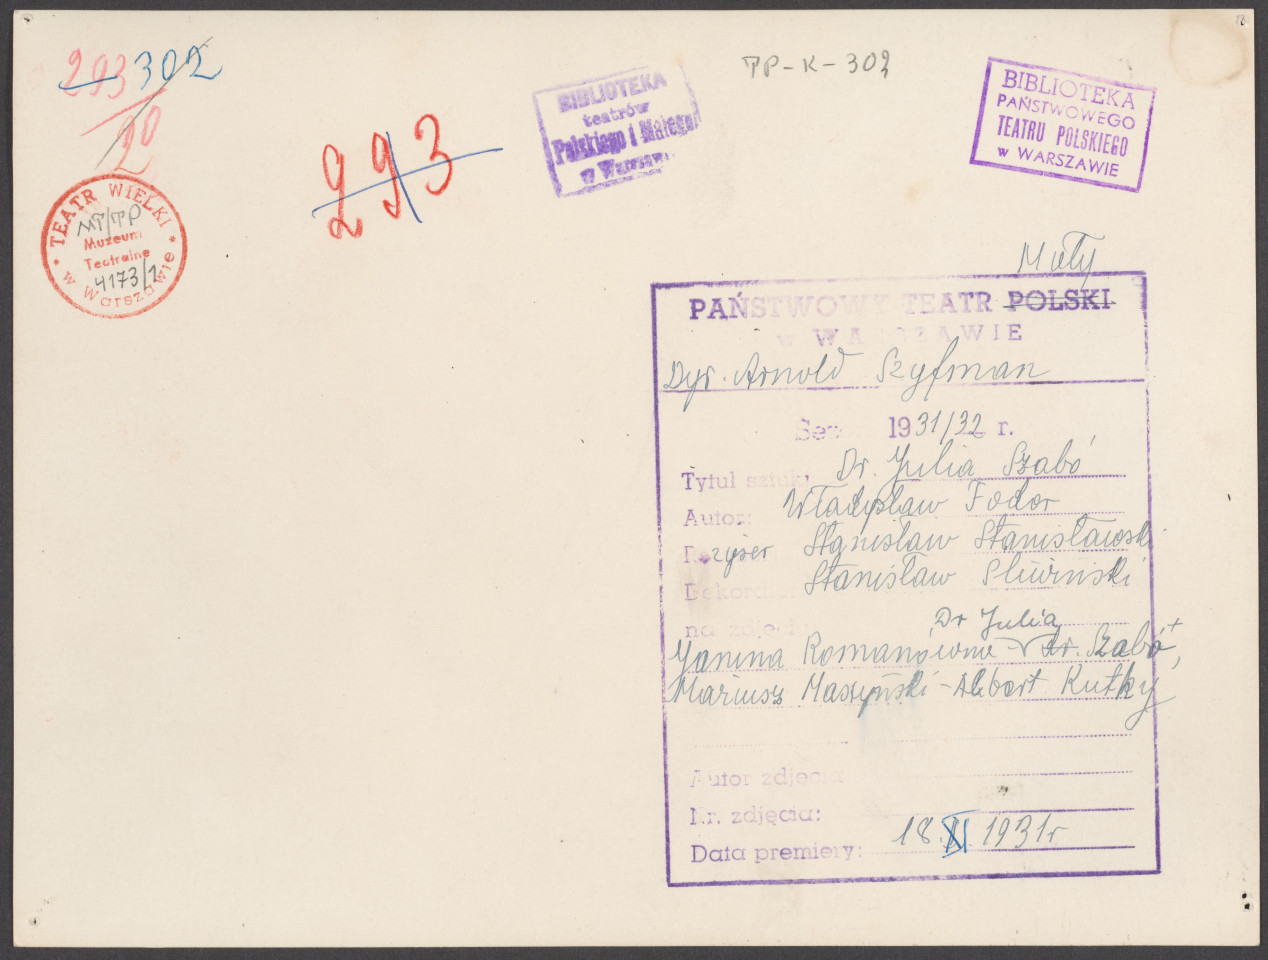 293 302
20
TP-K-302
BIBLIOTEKA
teatrów
Polskiego i Małego
w Warszawie
BIBLIOTEKA
PAŃSTWOWEGO
TEATRU POLSKIEGO
w WARSZAWIE
293
TEATR WIELKI
MT/TP
Muzeum
Teatralne
4173/1
w Warszawie
Mały
PAŃSTWOWY TEATR POLSKI
w WARSZAWIE
Dyr. Arnold Szyfman
Sez 1931/32 r.
Tytuł sztuki: Dr. Julia Szabó
Autor: Władysław Fodor
Reżyser Stanisław Stanisławski
Dekorator Stanisław Śliwiński
na zdjęciu: Dr Julia
Janina Romanówna - dr. Szabó,
Mariusz Maszyński - Albert Kutky
Autor zdjęcia
Nr. zdjęcia:
Data premiery: 18.XI 1931r